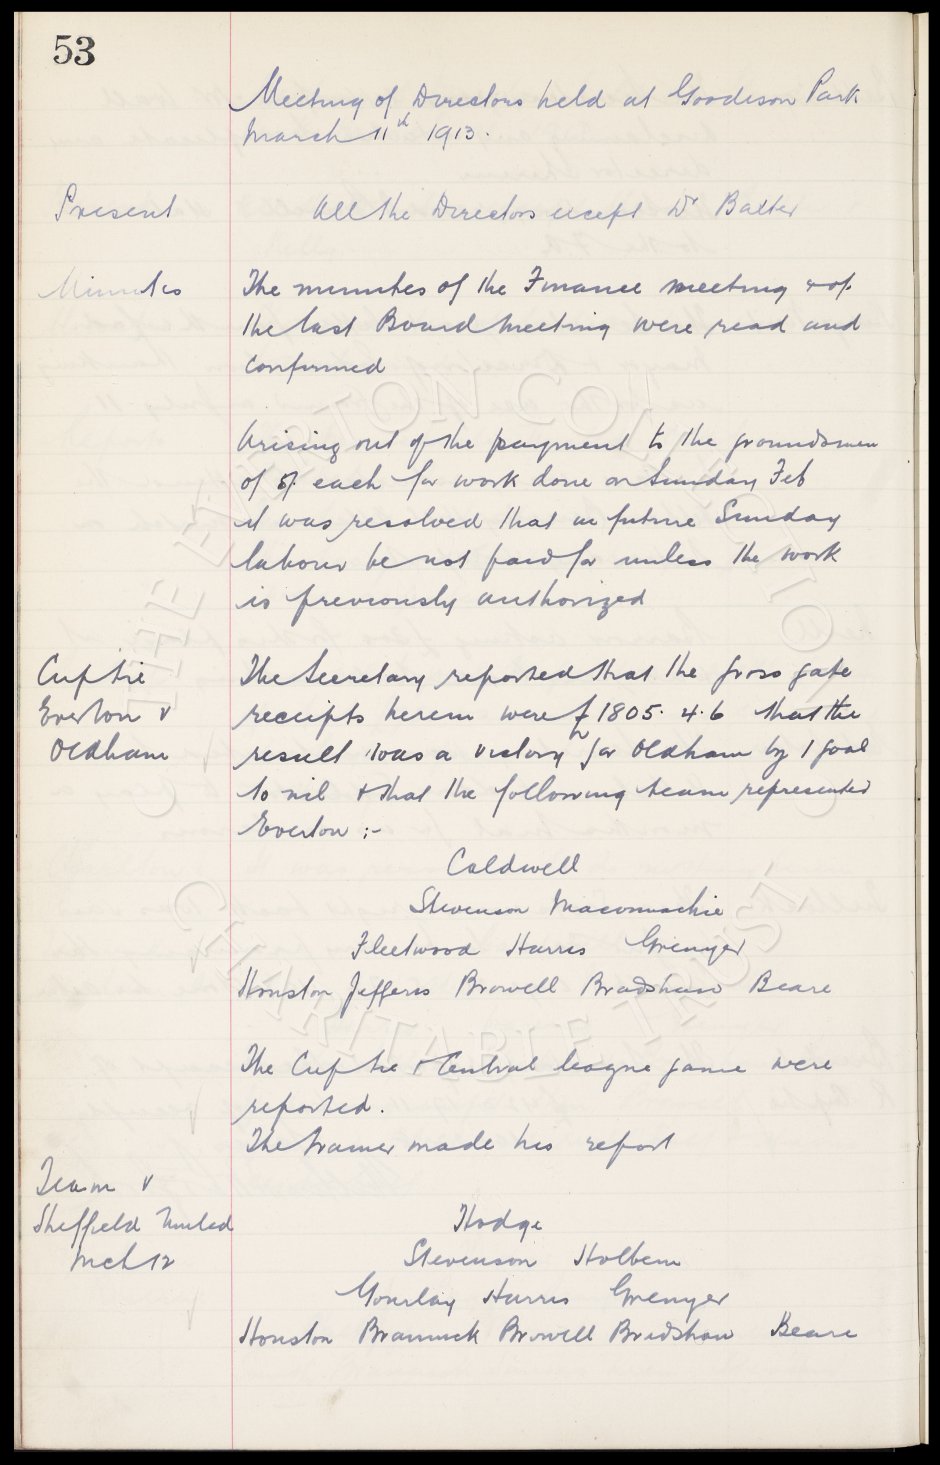 53
Meeting of Directors held at Goodison Park
March 11th 1913.
Present All the Directors except Dr Baxter
Minutes The minutes of the Finance meeting & of
the last Board meeting were read and
confirmed
Arising out of the payment to the groundsmen
of 5/. each for work done on Sunday Feb
it was resolved that in future Sunday
labour be not paid for unless the work
is previously authorized
Cup tie The Secretary reported that the gross gate
Everton v receipts herein were £1805. 4. 6 that the
Oldham result was a victory for Oldham by 1 goal
to nil & that the following team represented
Everton :-
Caldwell
Stevenson Maconnachie
Fleetwood Harris Grenyer
Houston Jefferis Browell Bradshaw Beare
The Cup tie & Central league game were
reported.
The trainer made his report
Team v
Sheffield United Hodge
Mch 12 Stevenson Holbem
Gourlay Harris Grenyer
Houston Brannick Browell Bradshaw Beare
THE EVERTON COLLECTION
CHARITABLE TRUST